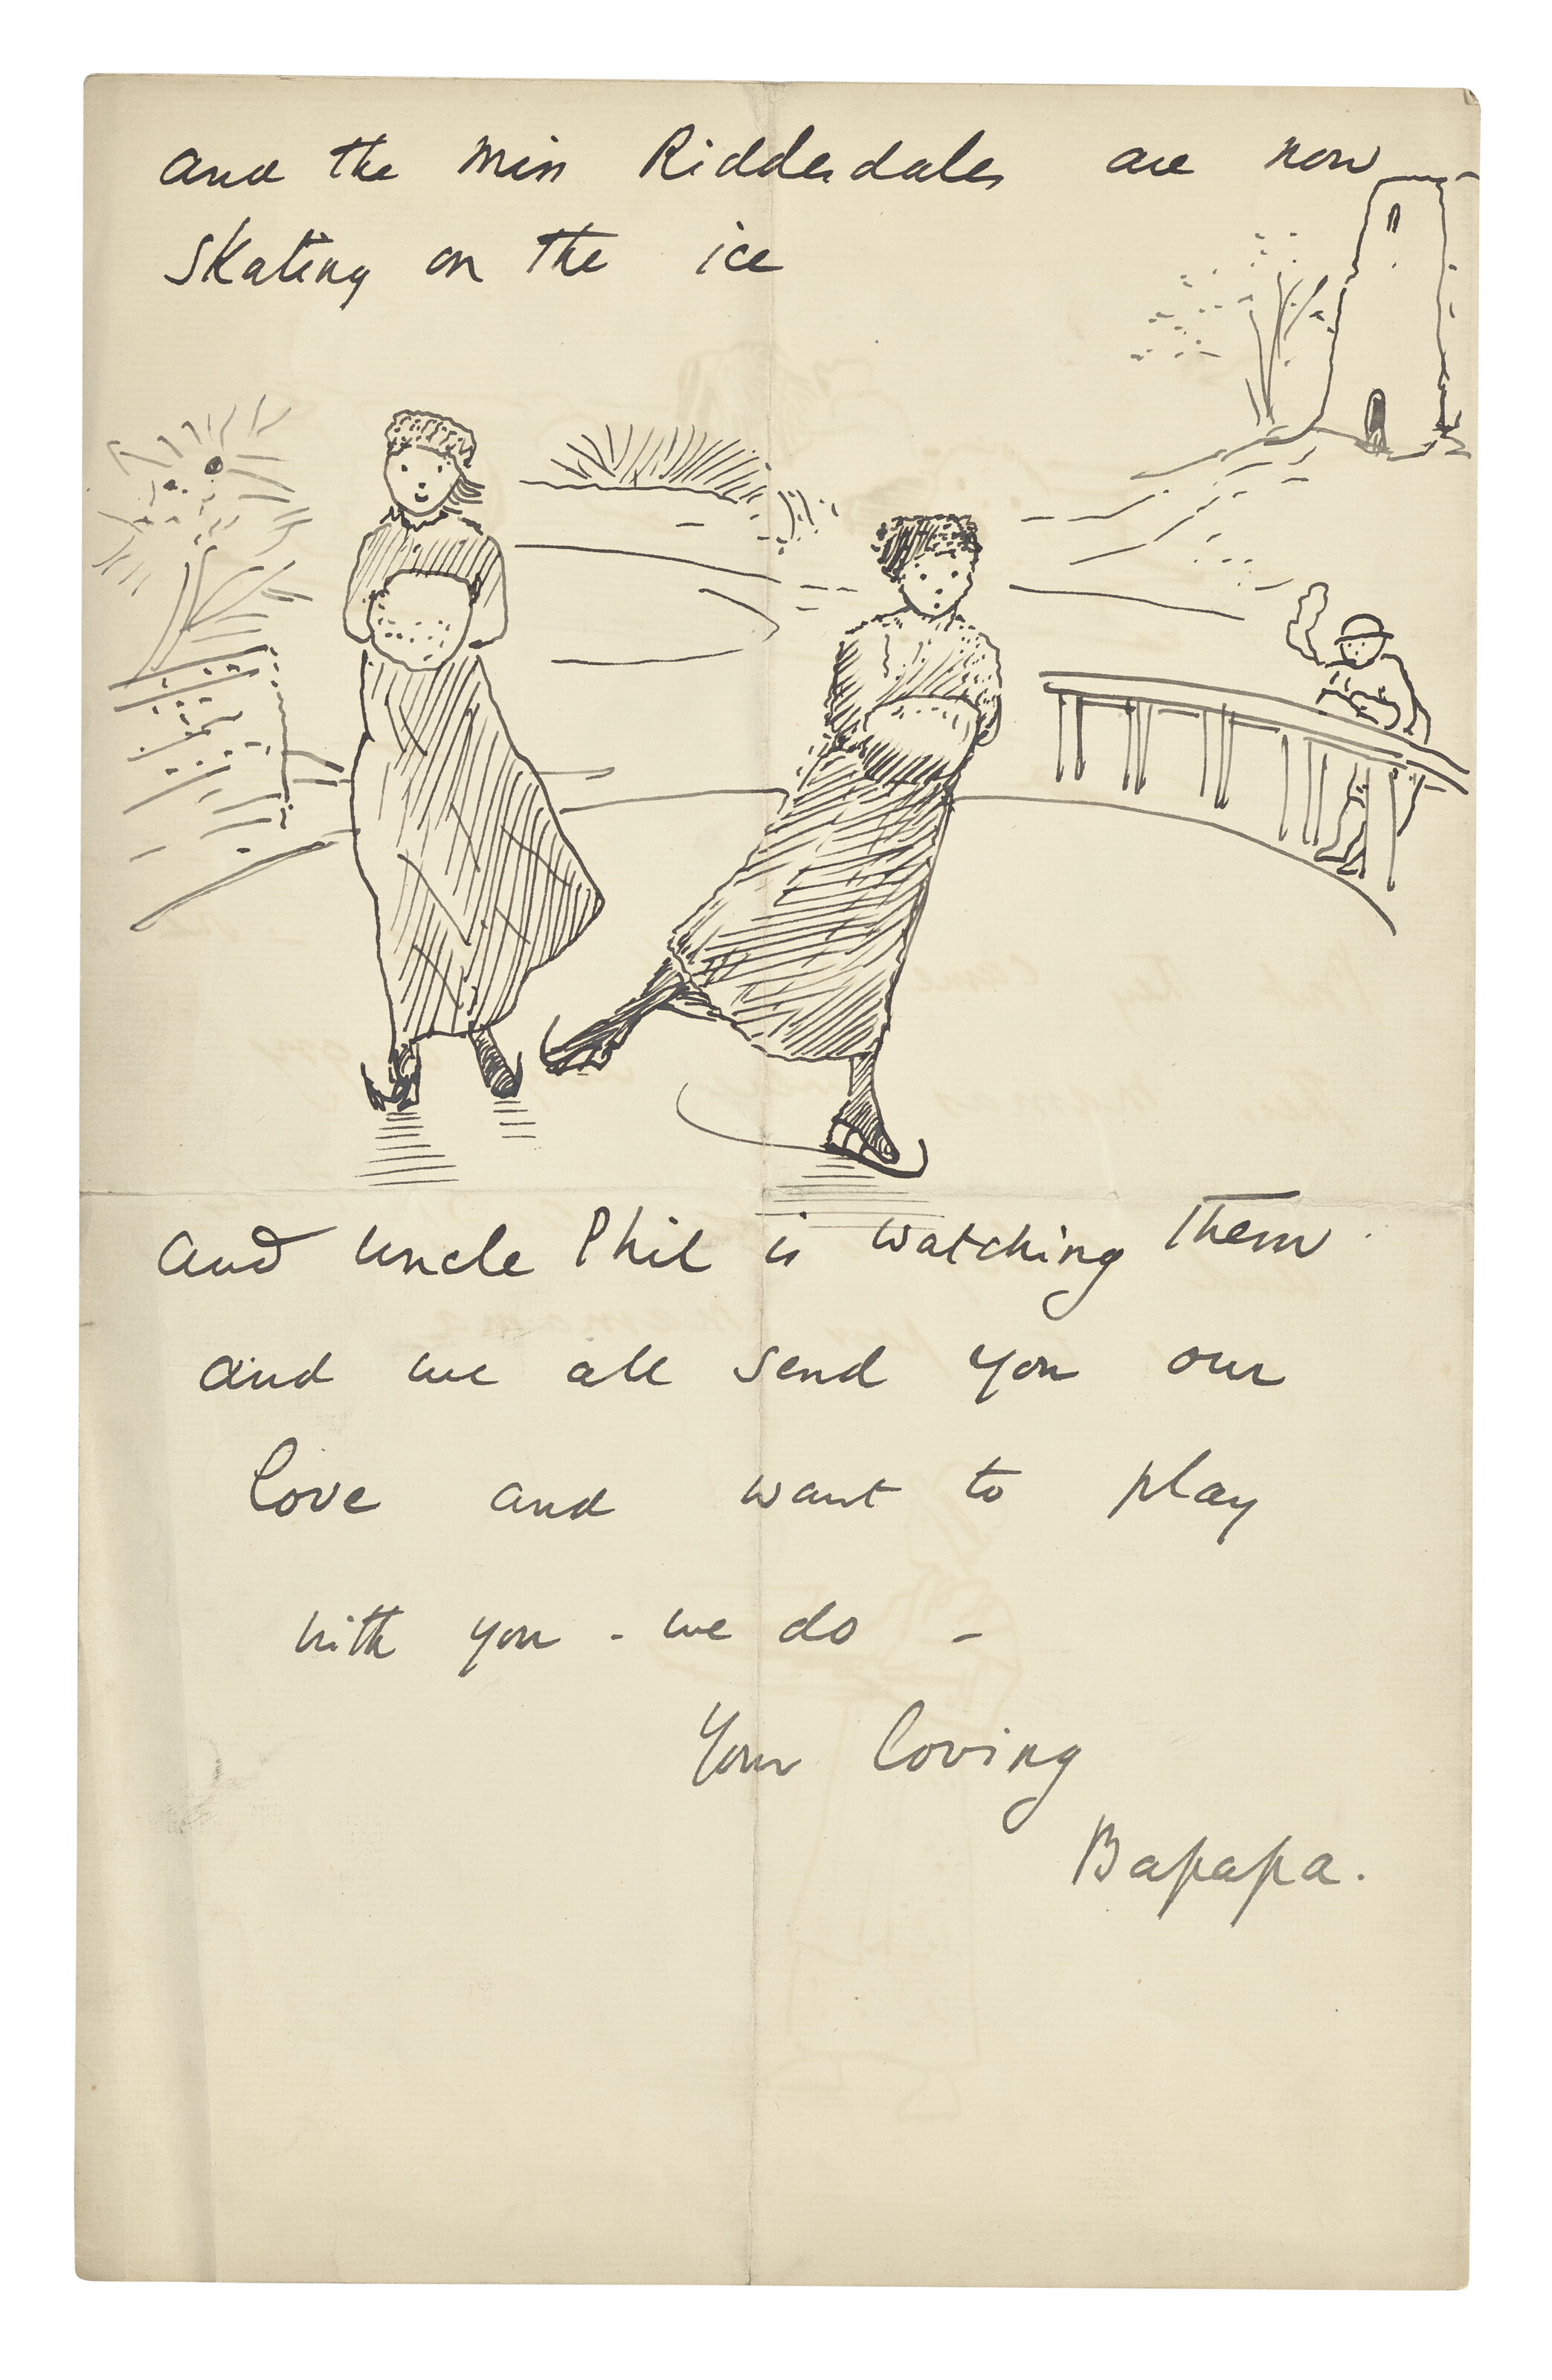 and the Miss Ridderdales are now
skating on the ice
and Uncle Phil is watching them
and we all send you our
love and want to play
with you - we do -
Your loving
Bapapa.